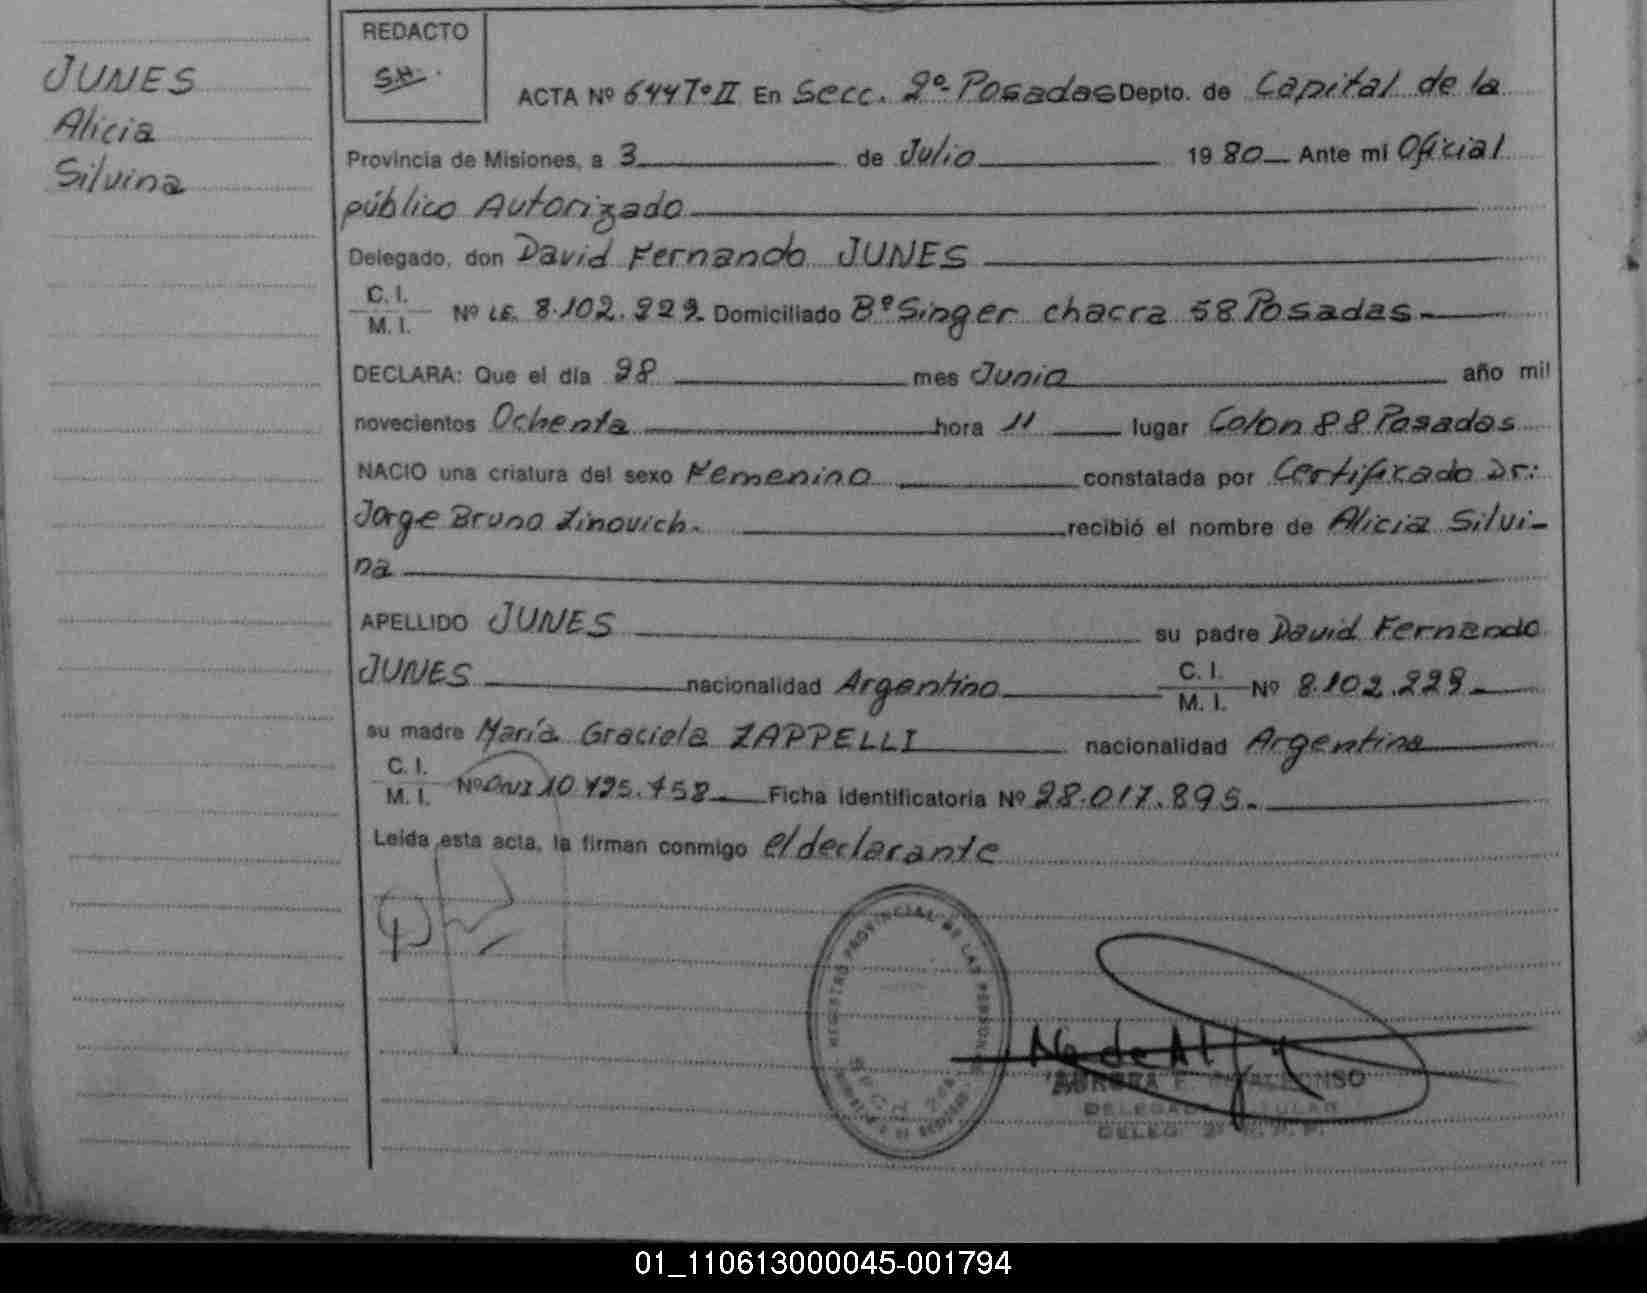 JUNES
Alicia
Silvina
REDACTO
ACTA Nº 644Tº II En Secc. 2º- Posadas Depto. de Capital de la
Provincia de Misiones, a 3 de Julio 19 80 Ante mi Oficial
público Autorizado
Delegado, don David Fernando JUNES
C. I.
M. I. Nº LE. 8.102.229 Domiciliado Bº Singer chacra 58 Posadas
DECLARA: Que el día 28 mes Junio año mil
novecientos Ochenta hora 11 lugar Colon Posadas
NACIO una criatura del sexo Femenino constatada por Certificado Dr:
Jorge Bruno Zinovich. recibió el nombre de Alicia Silvi-
na
APELLIDO JUNES su padre David Fernando
JUNES nacionalidad Argentino C. I.
M. I. Nº 8.102.229
su madre María Graciela ZAPPELLI nacionalidad Argentina
C. I.
M. I. Nº DNI Ficha identificatoria Nº 28.017.895.
Leída esta acta, la firman conmigo el declarante
REGISTRO PROVINCIAL DE LAS PERSONAS
DELEGADO TITULAR
DELEG. 2ª
01_110613000045-001794